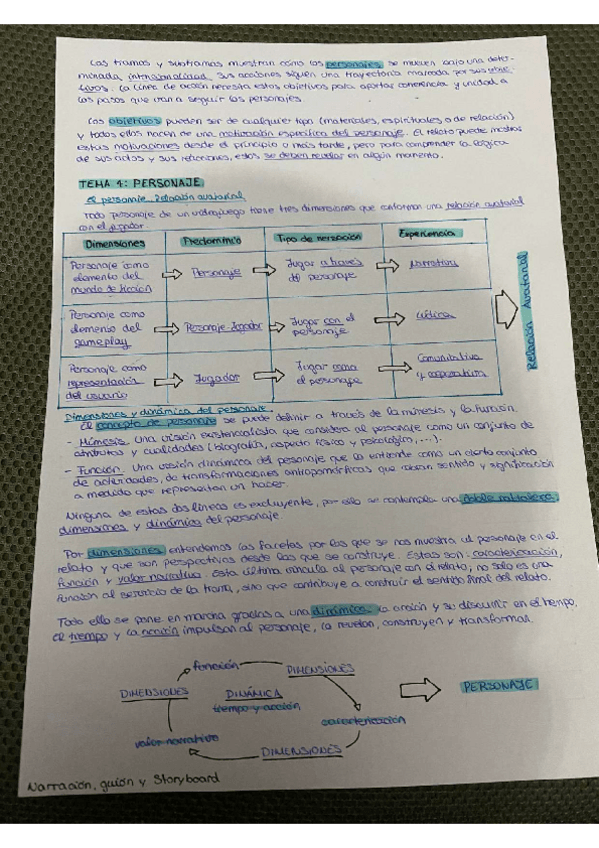 Las tramas y subtramas muestran cómo los personajes se mueven bajo una deter-
minada intencionalidad. Sus acciones siguen una trayectoria marcada por sus obje-
tivos. La línea de acción necesita estos objetivos para aportar coherencia y unidad a
los pasos que van a seguir los personajes.
Los objetivos pueden ser de cualquier tipo (materiales, espirituales o de relación)
y todos ellos nacen de una motivación específica del personaje. El relato puede mostrar
estas motivaciones desde el principio o más tarde, pero para comprender la lógica
de sus actos y sus relaciones, estos se deben revelar en algún momento.
TEMA 4: PERSONAJE
El personaje. Relación avatarial
Todo personaje de un videojuego tiene tres dimensiones que conforman una relación avatarial
con el jugador.
Dimensiones Predominio Tipo de narración Experiencia
Personaje como
elemento del
mundo de ficción
Personaje
Jugar a través
del personaje
Narrativa
Personaje como
elemento del
gameplay
Personaje-Jugador
Jugar con el
personaje
Lúdica
Personaje como
representación
del usuario
Jugador
Jugar como
el personaje
Comunicativa
y cooperativa
Relación Avatarial
Dimensiones y dinámica del personaje.
El concepto de personaje se puede definir a través de la mímesis y la función.
- Mímesis. Una visión existencialista que considera al personaje como un conjunto de
atributos y cualidades (biografía, aspecto físico y psicológico, ...).
- Función. Una visión dinámica del personaje que lo entiende como un cierto conjunto
de actividades, de transformaciones antropomórficas que cobran sentido y significación
a medida que representan un hacer.
Ninguna de estas dos líneas es excluyente, por ello se contempla una doble naturaleza,
dimensiones y dinámica del personaje.
Por dimensiones entendemos las facetas por las que se nos muestra al personaje en el
relato y que son perspectivas desde las que se construye. Estas son: caracterización,
función y valor narrativo. Esta última vincula al personaje con el relato; no solo es una
función al servicio de la trama, sino que contribuye a construir el sentido final del relato.
Todo ello se pone en marcha gracias a una dinámica: la acción y su discurrir en el tiempo.
El tiempo y la acción impulsan al personaje, lo revelan, construyen y transforman.
función
DIMENSIONES
DIMENSIONES
DINÁMICA
tiempo y acción
PERSONAJE
caracterización
valor narrativo
DIMENSIONES
Narración, guión y Storyboard